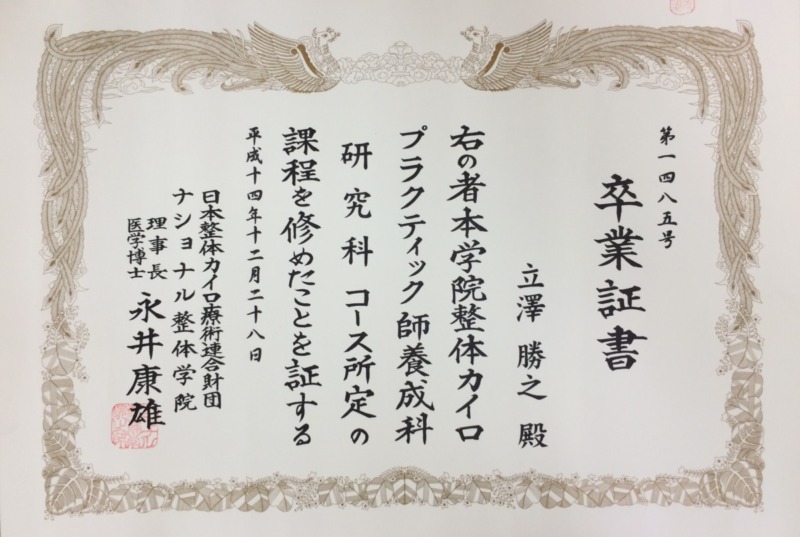 第一四八五号
卒業証書
立澤勝之 殿
右の者本学院整体カイロ
プラクティック師養成科
研究科コース所定の
課程を修めたことを証する
平成十四年十二月二十八日
日本整体カイロ療術連合財団
ナショナル整体学院
理事長
医学博士
永井康雄